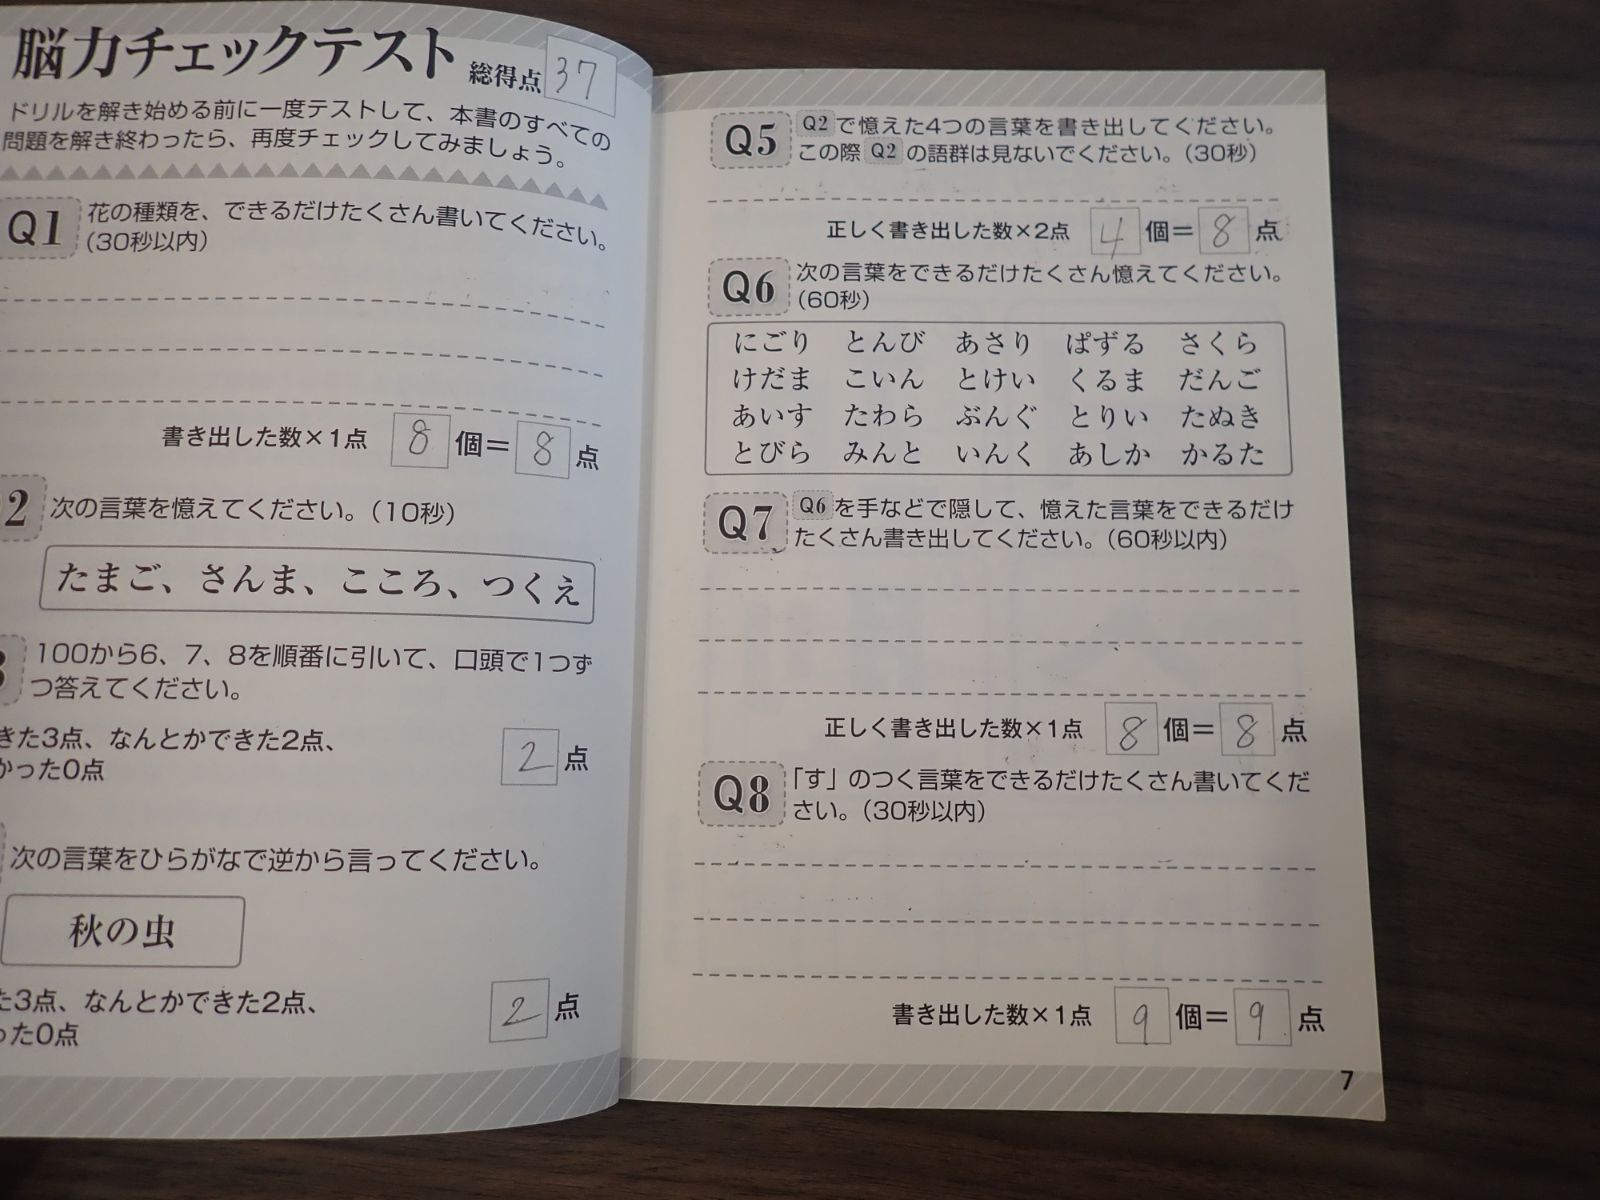 脳力チェックテスト 総得点 37
ドリルを解き始める前に一度テストして、本書のすべての
問題を解き終わったら、再度チェックしてみましょう。
Q1 花の種類を、できるだけたくさん書いてください。
(30秒以内)
書き出した数×1点 8 個= 8 点
2 次の言葉を憶えてください。(10秒)
たまご、さんま、こころ、つくえ
3 100から6、7、8を順番に引いて、口頭で1つず
つ答えてください。
きた3点、なんとかできた2点、
かった0点
2 点
次の言葉をひらがなで逆から言ってください。
秋の虫
た3点、なんとかできた2点、
った0点
2 点
Q5 Q2で憶えた4つの言葉を書き出してください。
この際 Q2 の語群は見ないでください。(30秒)
正しく書き出した数×2点 4 個= 8 点
Q6 次の言葉をできるだけたくさん憶えてください。
(60秒)
にごり とんび あさり ぱずる さくら
けだま こいん とけい くるま だんご
あいす たわら ぶんぐ とりい たぬき
とびら みんと いんく あしか かるた
Q7 Q6を手などで隠して、憶えた言葉をできるだけ
たくさん書き出してください。(60秒以内)
正しく書き出した数×1点 8 個= 8 点
Q8 「す」のつく言葉をできるだけたくさん書いてくだ
さい。(30秒以内)
書き出した数×1点 9 個= 9 点
7